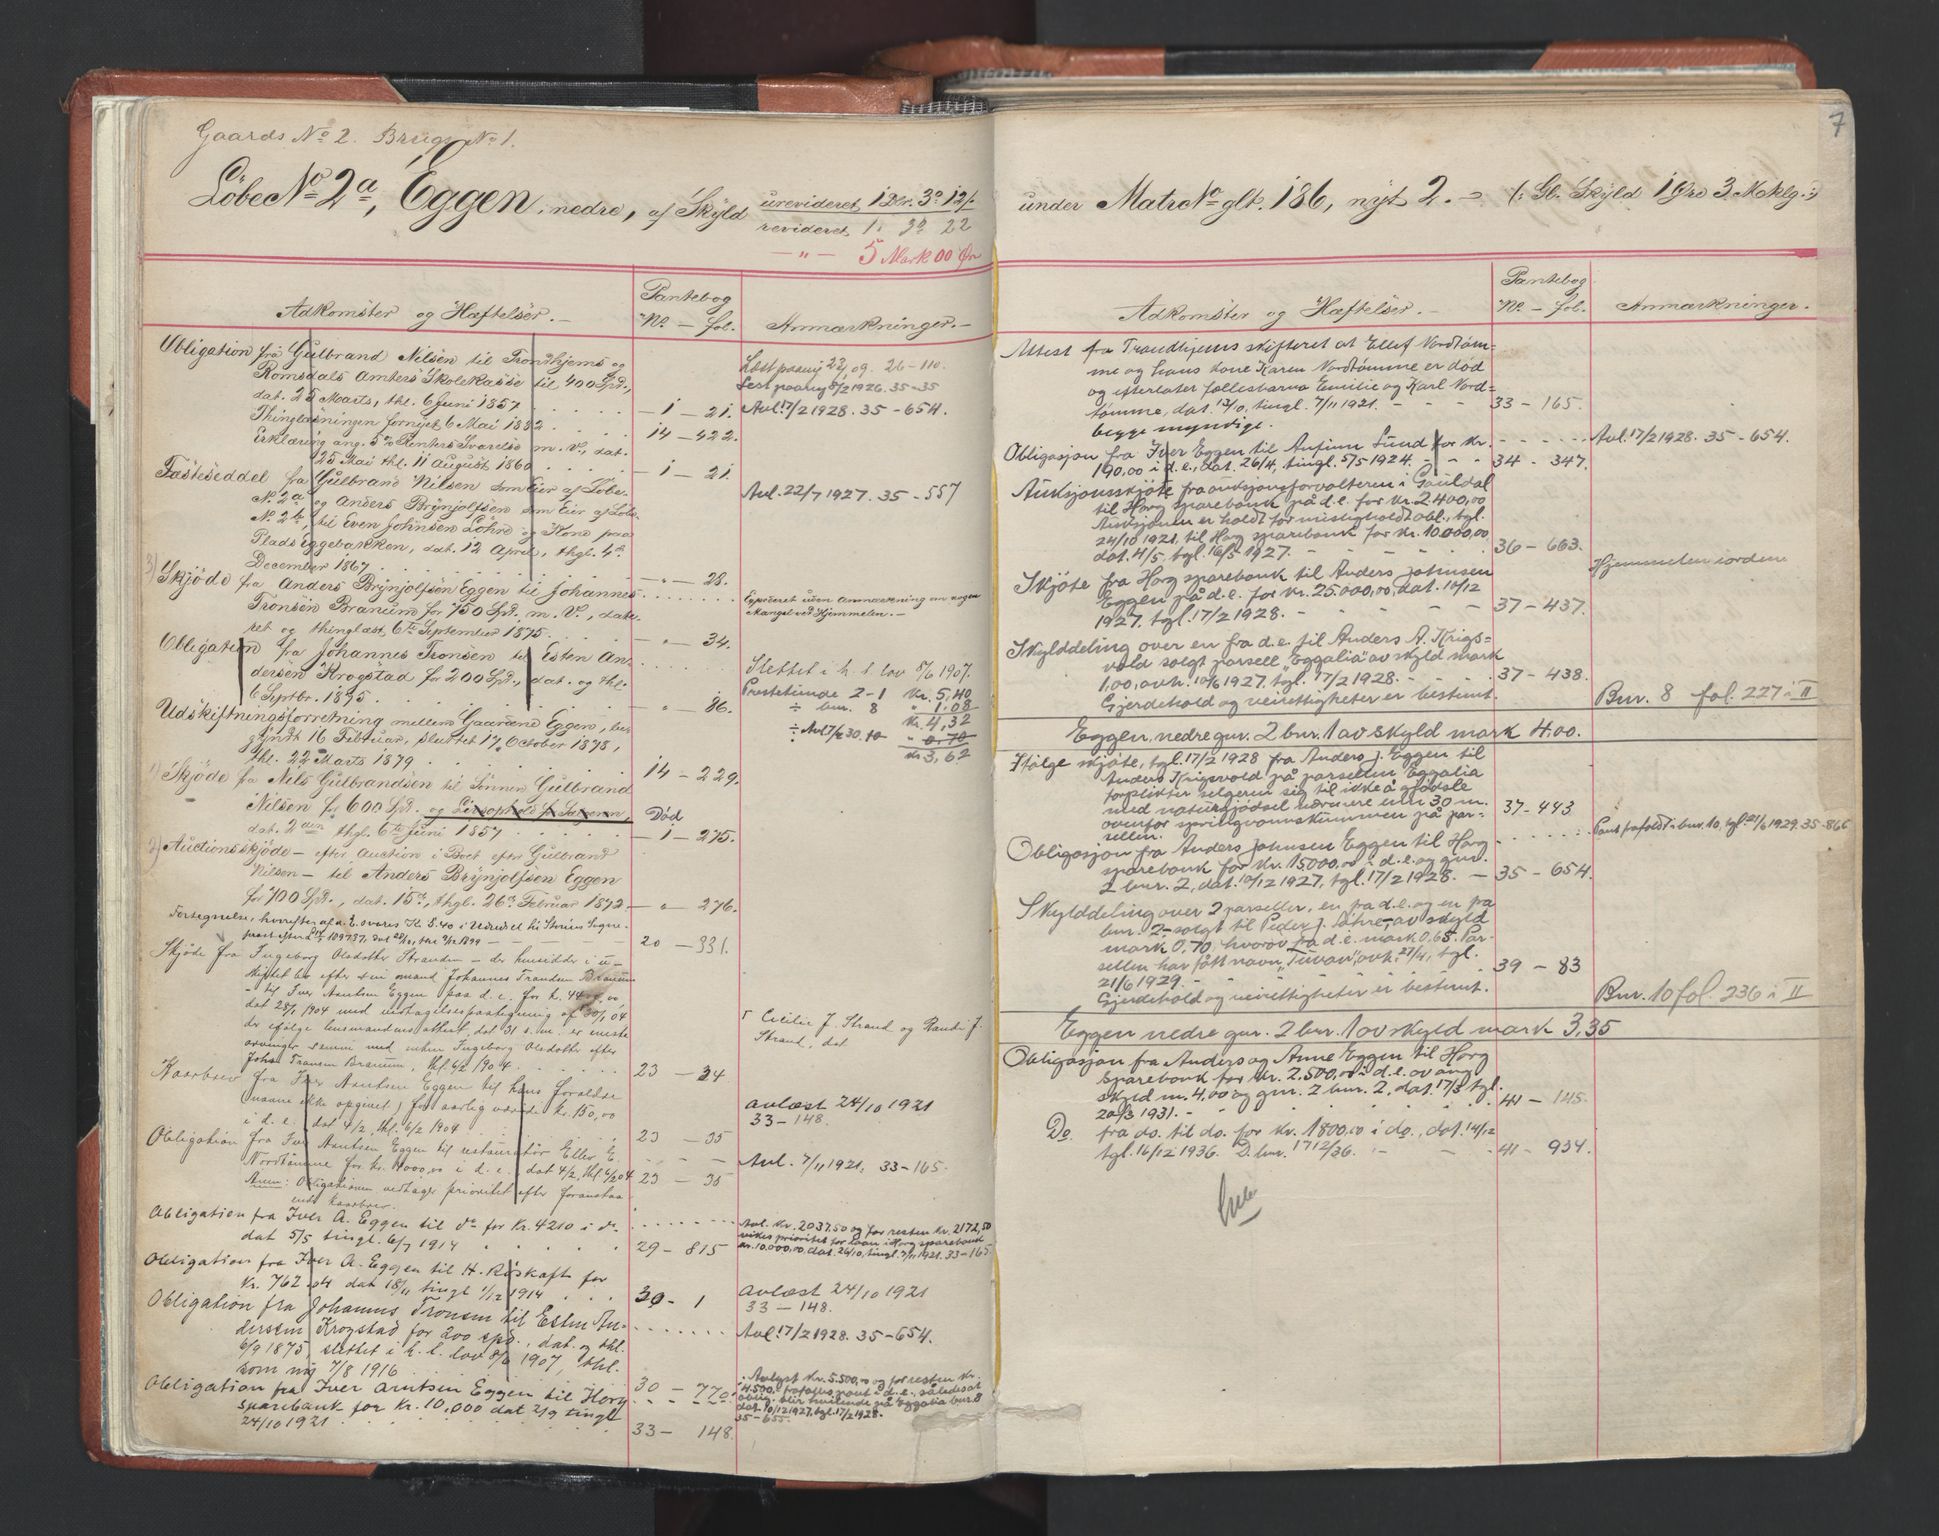 Gaards No 2. Brugs No 1.
Löbe No 2a, Eggen, nedre, af Skyld urevideret 1 Dlr. 3 o 12 /-
revideret 1. 3 o 22
— „ — 5 Mark 00 Øre
Adkomster og Hæftelser. —
Pantebog
No. — fol.
Anmærkninger. —
Obligation fra Gulbrand Nilsen til Trondhjems og
Romsdals Amters Skolekasse til 400 Spd.,
dat. 25 Marts, thl. 6 Juni 1857 . . . — 1 — 21.
Thinglæsningen fornyet 6 Mai 1882 . . . 14 — 422.
Erklæring ang. 5% Renters Svarelse m. V., dat.
25 Mai thl. 11 August 1860 . . . — 1 — 21.
Læst paany 23/1 09. 26 — 110.
Lest paany 8/2 1926. 35 — 35
Avl. 17/2 1928. 35 — 654.
Fæsteseddel fra Gulbrand Nilsen som Eier af Löbe-
No. 2a og Anders Brynjolfsen som Eier af Löbe-
No. 2b, til Even Johnsen Löhre og Kone paa
Plads Eggebakken, dat. 12 April, thgl. 4de
December 1867 . . . — „ — 28.
Avl. 22/7 1927. 35 — 557
3) Skjöde fra Anders Brynjolfsen Eggen til Johannes
Tronsen Branum for 750 Spd. m. V., date-
ret og thinglæst 6te September 1875 . . . — „ — 34.
Exproeret uden Anmærkning om nogen
Mangel ved Hjemmelen. —
Obligation fra Johannes Tronsen til Esten An-
dersen Krogstad for 200 Spd., dat. og thl.
6 Septbr. 1875 . . . — „ — 86.
Slettet i h. t. lov 8/6 1907.
Udskiftningsforretning mellem Gaardene Eggen, be-
gyndt 16 Februar, sluttet 17 October 1878,
thl. 22 Marts 1879 . . . 14 — 229.
Prestetiende 2-1 Kr. 5,40
÷ bnr. 8 „ 1,08
Kr. 4,32
÷ Avl 17/2 30. 10 „ 0,70
Kr 3,62
1) Skjöde fra Nils Gulbrandsen til Sönnen Gulbrand
Nilsen for 600 Spd. og Livsophold for Sælgeren, Död
dat. 2den thgl. 6te Juni 1857 . . . — 1 — 275.
2) Auctionsskjöde — efter Auction i Boet efter Gulbrand
Nilsen — til Anders Brynjolfsen Eggen
for 700 Spd., dat. 15de, thgl. 26de Februar 1872 — „ — 276.
20 — 331.
Skjöde fra Ingeborg Olsdatter Stranden — der hensidder i u-
skiftet bo efter sin mand Johannes Transen Branum
— til Iver Arntsen Eggen paa d. e. for k. 4400,00
dat 28/1 1904 med vedtagelsespaategning af 30/1 04
der ifølge lensmandens attest dat 31 s. m. er eneste
arvinger sammen med enken Ingeborg Olsdatter efter
Johs Transen Branum, thl. 6/2 1904 . . . 23 — 34
Cecilie J. Strand og Randi J.
Strand, dat
Kaarbrev fra Iver Arntsen Eggen til hans foreldre
(navne ikke opgivet) for aarlig værdi kr. 150,00
i d. e. dat 4/2, thl. 6/2 1904 . . . 23 — 35
avlæst 24/10 1921
33 — 148.
Obligation fra Iver Arntsen Eggen til restauratör Ellef E.
Nordtömme for kr. 4000,00 i d. e. dat 4/2, thl 6/2 04 23 — 35
Anm: Obligationen vedtager prioritet efter foranstaa-
ende kaarbrev.
Avl. 7/11 1921. 33 — 165.
Obligation fra Iver A. Eggen til do for Kr. 4210 i do
dat 5/5 tingl. 6/7 1914 29 — 815
Avl. Kr. 2037,50 og for resten Kr. 2172,50
vikes prioritet for laan i Horg sparebank
Kr. 10.000,00, dat. 26/10, tingl. 7/11 1921. 33 — 165.
Obligation fra Iver A. Eggen til H. Röskaft for
Kr. 762,04 dat 18/11 tingl 1/12 1914 . . . 30 — 1
avlæst 24/10 1921
33 — 148.
Obligation fra Johannes Tronsen til Esten An-
dersen Krogstad for 200 spd., dat. og thl.
6/9 1875, slettet i h. t. lov 8/6 1907, thl.
som nei 7/8 1916 . . . 30 — 770.
Avl. 17/2 1928. 35 — 654.
Obligation fra Iver Arntsen Eggen til Horg
sparebank for Kr. 10,000 dat 2/9 tingl
24/10 1921 33 — 148.
Avlyst Kr. 5.500,00 og for resten Kr.
4.500,- frafalles pant i d. e., således at
oblig. blir hvilende på Eggalia bnr. 8
dat. 10/12 1927, tgl. 17/2 1928.
35 — 655.
7
under Matr No glt. 186, nyt 2. — (: Gl. Skyld 1 Øre 3 Mcklg. :)
Adkomster og Hæftelser. —
Pantebog
No. — fol.
Anmærkninger.
Attest fra Trondhjems skifteret at Ellef Nordtöm-
me og hans kone Karen Nordtömme er död
og efterlater fællesbarna Emilie og Karl Nord-
tömme, dat. 13/10, tingl. 7/11 1921. — — — 33 — 165.
begge myndige.
Obligasjon fra Iver Eggen til Anfinn Lund for kr.
190,00 i d. e., dat. 26/4, tingl. 5/5 1924. — — 34 — 347.
Avl. 17/2 1928. 35 — 654.
Auksjonsskjöte fra auksjonsforvalteren i Gauldal
til Horg sparebank på d. e. for kr. 2400,00
Auksjonen er holdt for misligholdt obl., tgl.
24/10 1921, til Horg sparebank for kr. 10.000,00,
dat. 4/5, tgl. 16/5 1927. — — — 36 — 663.
Hjemmelen i orden
Skjöte fra Horg sparebank til Anders Johnsen
Eggen på d. e. for kr. 25.000,00, dat. 10/12
1927, tgl. 17/2 1928. — — — 37 — 437.
Skylddeling over en fra d. e. til Anders A. Krigs-
vold solgt parsell „Eggalia” av skyld mark
1,00, avh. 10/6 1927, tgl. 17/2 1928. — — 37 — 438.
Gjerdehold og veirettigheter er bestemt.
Bnr. 8 fol. 227 i II
Eggen, nedre gnr. 2 bnr. 1 av skyld mark 4.00.
Ifölge skjöte, tgl. 17/2 1928 fra Anders J. Eggen til
Anders Krigsvold på parsellen Eggalia
forplikter selgeren sig til ikke å gjödsle
med naturgjödsel nærmere enn 30 m.
ovenfor springvannskummen på par-
sellen. 37 — 443
Obligasjon fra Anders Johnsen Eggen til Horg
sparebank for kr. 15000,00 i d. e. og gnr.
2 bnr. 2, dat. 10/12 1927, tgl. 17/2 1928. — 35 — 654.
Pant frafaldt i bnr. 10, tgl. 21/6 1929. 35-866
Skylddeling over 2 parseller, en fra d. e. og en fra
bnr. 2 — solgt til Peder J. Löhre, av skyld
mark 0,70, hvorav fra d. e. mark 0,65. Par-
sellen har fått navn „Tuvan”, avh. 27/4, tgl.
21/6 1929. — — 39 — 83
Gjerdehold og veirettigheter er bestemt.
Bnr. 10 fol. 236 i II
Eggen nedre gnr. 2 bnr. 1 av skyld mark 3,35
Obligasjon fra Anders og Anne Eggen til Horg
sparebank for kr. 2,500,00 i d. e. av ang.
skyld m. 4,00 og gnr. 2 bnr. 2, dat. 17/3 tgl.
20/3 1931. — 41 — 145.
Do. fra do. til do. for kr. 1800.00 i do., dat. 14/12
tgl. 16/12 1936. D. bnr. 1712/36. — 41 — 934.